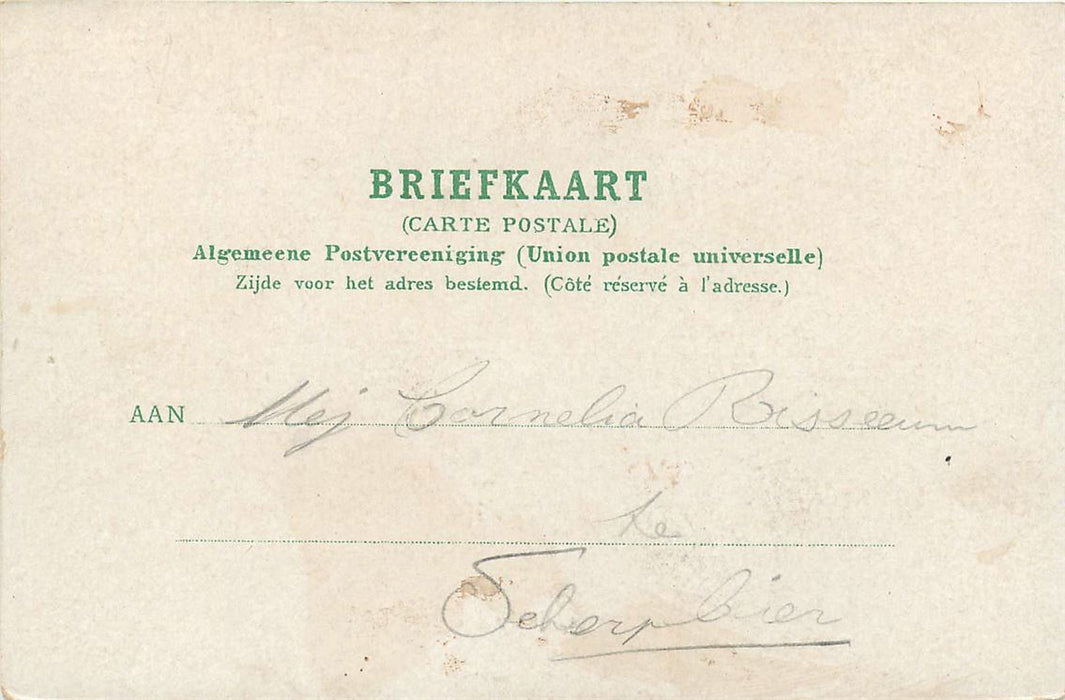 BRIEFKAART
(CARTE POSTALE)
Algemeene Postvereeniging (Union postale universelle)
Zijde voor het adres bestemd. (Côté réservé à l'adresse.)
AAN Mej Cornelia
te
Scherpbier